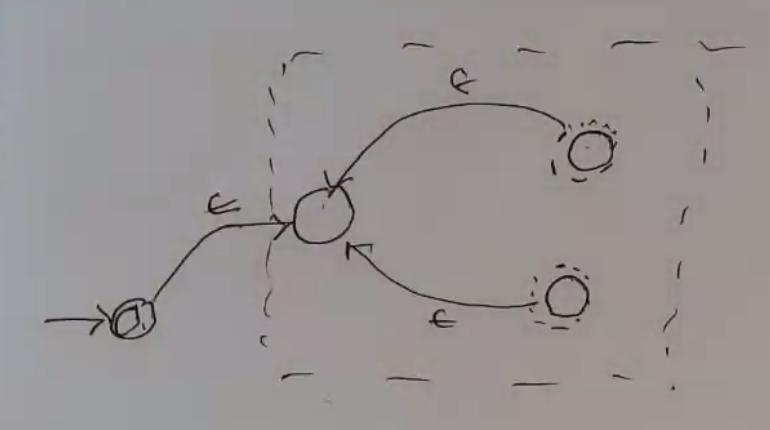 ε
ε
ε